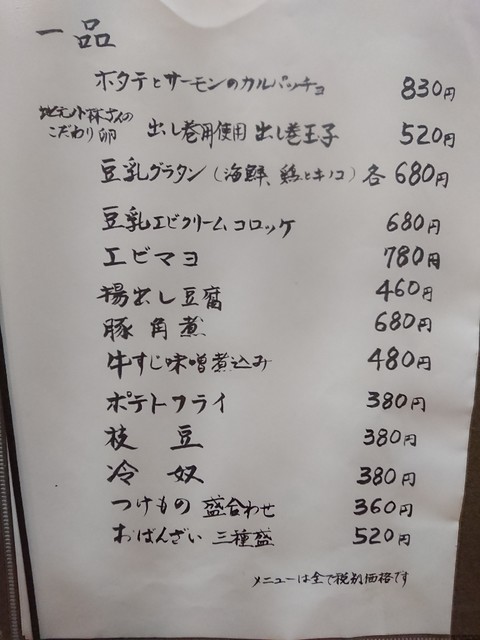 一品
ホタテとサーモンのカルパッチョ 830円
地元小林さんの
こだわり卵 出し巻用使用 出し巻玉子 520円
豆乳グラタン（海鮮、鶏とキノコ）各680円
豆乳エビクリームコロッケ 680円
エビマヨ 780円
揚出し豆腐 460円
豚角煮 680円
牛すじ味噌煮込み 480円
ポテトフライ 380円
枝豆 380円
冷奴 380円
つけもの 盛合わせ 360円
おばんざい 三種盛 520円
メニューは全て税別価格です